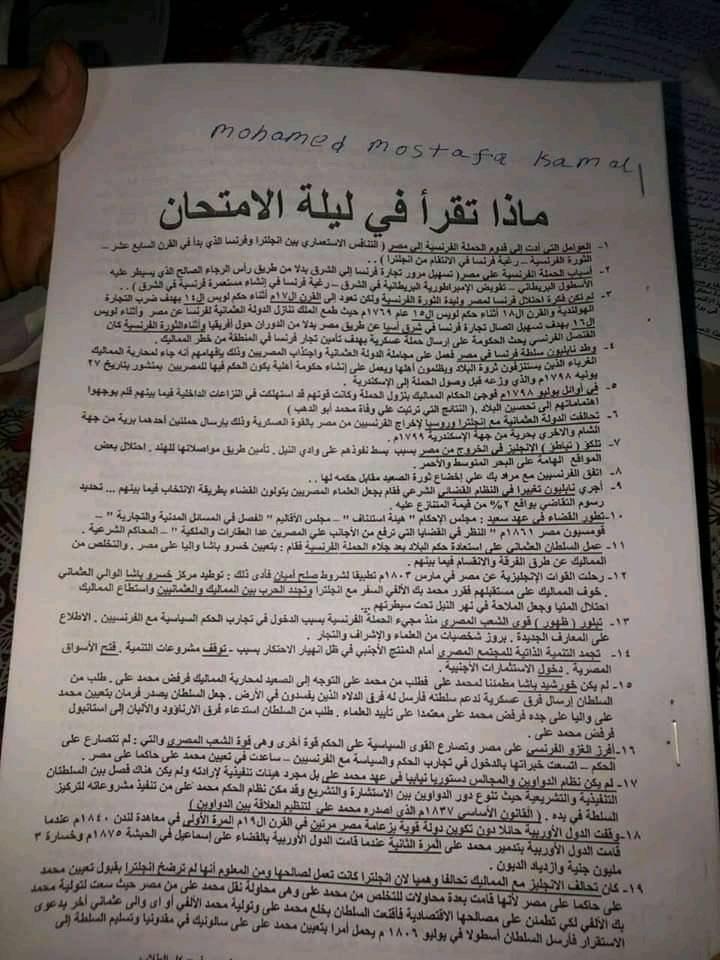 mohamed mostafa kamal
ماذا تقرأ في ليلة الامتحان
١- العوامل التي أدت إلى قدوم الحملة الفرنسية إلى مصر ( التنافس الاستعماري بين انجلترا وفرنسا الذي بدأ في القرن السابع عشر –
الثورة الفرنسية – رغبة فرنسا في الانتقام من انجلترا ) . .
٢- أسباب الحملة الفرنسية على مصر( تسهيل مرور تجارة فرنسا إلى الشرق بدلا من طريق رأس الرجاء الصالح الذي يسيطر عليه
الأسطول البريطاني – تقويض الإمبراطورية البريطانية في الشرق – رغبة فرنسا في إنشاء مستعمرة فرنسية في الشرق ) . .
٣- لم تكن فكرة احتلال فرنسا لمصر وليدة الثورة الفرنسية ولكن تعود إلى القرن ال١٧م أثناء حكم لويس ال١٤ بهدف ضرب التجارة
الهولندية والقرن ال١٨ أثناء حكم لويس ال١٥ عام ١٧٦٩م حيث طمع الملك تنازل الدولة العثمانية لفرنسا عن مصر وأثناء لويس
ال١٦ بهدف تسهيل اتصال تجارة فرنسا في شرق أسيا عن طريق مصر بدلا من الدوران حول أفريقيا وأثناء الثورة الفرنسية كان
القنصل الفرنسي يحث الحكومة على إرسال حملة عسكرية بهدف تأمين تجار فرنسا في المنطقة من خطر المماليك .
٤- وطد نابليون سلطة فرنسا في مصر فعمل على مجاملة الدولة العثمانية واجتذاب المصريين وذلك بإفهامهم أنه جاء لمحاربة المماليك
الغرباء الذين يستنزفون ثروة البلاد ويظلمون أهلها ويعمل على إنشاء حكومة أهلية يكون الحكم فيها للمصريين بمنشور بتاريخ ٢٧
يونيه ١٧٩٨م والذي وزعه قبل وصول الحملة إلى الإسكندرية .
٥- في أوائل يوليو ١٧٩٨م فوجئ الحكام المماليك بنزول الحملة وكانت قوتهم قد استهلكت في النزاعات الداخلية فيما بينهم فلم يوجهوا
اهتماماتهم إلى تحصين البلاد . ( النتائج التي ترتبت علي وفاة محمد أبو الدهب )
٦- تحالفت الدولة العثمانية مع إنجلترا وروسيا لإخراج الفرنسيين من مصر بالقوة العسكرية وذلك بإرسال حملتين أحدهما برية من جهة
الشام والاخرى بحرية من جهة الإسكندرية ١٧٩٩م .
٧- تلكؤ ( تباطؤ ) الانجليز في الخروج من مصر بسبب بسط نفوذهم على وادي النيل . تأمين طريق مواصلاتها للهند . احتلال بعض
المواقع الهامة على البحر المتوسط والأحمر .
٨- اتفق الفرنسيين مع مراد بك علي إخضاع ثورة الصعيد مقابل حكمه لها . .
٩- أجري نابليون تغييرا في النظام القضائي الشرعي فقام بجعل العلماء المصريين يتولون القضاء بطريقة الانتخاب فيما بينهم ... تحديد
رسوم التقاضي بواقع ٢% من قيمة المتنازع عليه .
١٠- تطور القضاء في عهد سعيد : مجلس الإحكام " هيئة استئناف " – مجلس الأقاليم " الفصل في المسائل المدنية والتجارية –
قومسيون مصر ١٨٦١م " النظر في القضايا التي ترفع من الأجانب علي المصرين عدا العقارات والملكية " – المحاكم الشرعية .
١١- عمل السلطان العثماني على استعادة حكم البلاد بعد جلاء الحملة الفرنسية فقام : بتعيين خسرو باشا واليا على مصر . والتخلص من
المماليك عن طرق الفرقة والانقسام فيما بينهم .
١٢- رحلت القوات الإنجليزية عن مصر في مارس ١٨٠٣م تطبيقا لشروط صلح أميان فأدى ذلك : توطيد مركز خسرو باشا الوالي العثماني
. خوف المماليك على مستقبلهم فقرر محمد بك الألفي السفر مع انجلترا وتجدد الحرب بين المماليك والعثمانيين واستطاع المماليك
احتلال المنيا وجعل الملاحة في نهر النيل تحت سيطرتهم ...
١٣- تبلور ( ظهور ) قوى الشعب المصري منذ مجيء الحملة الفرنسية بسبب الدخول في تجارب الحكم السياسية مع الفرنسيين . الاطلاع
على المعارف الجديدة . بروز شخصيات من العلماء والإشراف والتجار .
١٤- تجمد التنمية الذاتية للمجتمع المصري أمام المنتج الأجنبي في ظل انهيار الاحتكار بسبب - توقف مشروعات التنمية . فتح الأسواق
المصرية . دخول الاستثمارات الأجنبية .
١٥- لم يكن خورشيد باشا مطمئنا لمحمد على فطلب من محمد على التوجه إلى الصعيد لمحاربة المماليك فرفض محمد على . طلب من
السلطان إرسال فرق عسكرية تدعم سلطته فأرسل له فرق الدلاه الذين يفسدون في الأرض . جعل السلطان يصدر فرمان بتعيين محمد
على واليا على جده فرفض محمد على معتمدا على تأييد العلماء . طلب من السلطان استدعاء فرق الارناؤود والألبان إلى استانبول
فرفض محمد على .
١٦- أفرز الغزو الفرنسي على مصر وتصارع القوى السياسية على الحكم قوة أخرى وهى قوة الشعب المصري والتي : لم تتصارع على
الحكم – اتسعت خبراتها بالدخول في تجارب الحكم والسياسة مع الفرنسيين – ساعدت في تعيين محمد على حاكما على مصر .
١٧- لم يكن نظام الدواوين والمجالس دستوريا نيابيا في عهد محمد على بل مجرد هيئات تنفيذية لإرادته ولم يكن هناك فصل بين السلطتان
التنفيذية والتشريعية حيث تنوع دور الدواوين بين الاستشارة والتشريع وقد مكن نظام الحكم محمد على من تنفيذ مشروعاته لتركيز
السلطة في يده . ( القانون الأساسي ١٨٣٧م الذي اصدره محمد علي لتنظيم العلاقة بين الدواوين )
١٨- وقفت الدول الأوربية حائلا دون تكوين دولة قوية بزعامة مصر مرتين في القرن ال١٩م المرة الأولى في معاهدة لندن ١٨٤٠م عندما
قامت الدول الأوربية بتدمير محمد على المرة الثانية عندما قامت الدول الأوربية بالقضاء على إسماعيل في الحبشة ١٨٧٥م وخسارة ٣
مليون جنية وازدياد الديون .
١٩- كان تحالف الانجليز مع المماليك تحالفا وهميا لان انجلترا كانت تعمل لصالحها ومن المعلوم أنها لم ترضخ انجلترا بقبول تعيين محمد
على حاكما على مصر لأنها قامت بعدة محاولات للتخلص من محمد على وهى محاولة نقل محمد على من مصر حيث سعت لتولية محمد
بك الألفي لكي تطمئن على مصالحها الاقتصادية فأقنعت السلطان بخلع محمد على وتولية محمد الألفي أو اى والى عثماني أخر بدعوى
الاستقرار فأرسل السلطان أسطولا في يوليو ١٨٠٦م يحمل أمرا بتعيين محمد على على سالونيك في مقدونيا وتسليم السلطة إلى